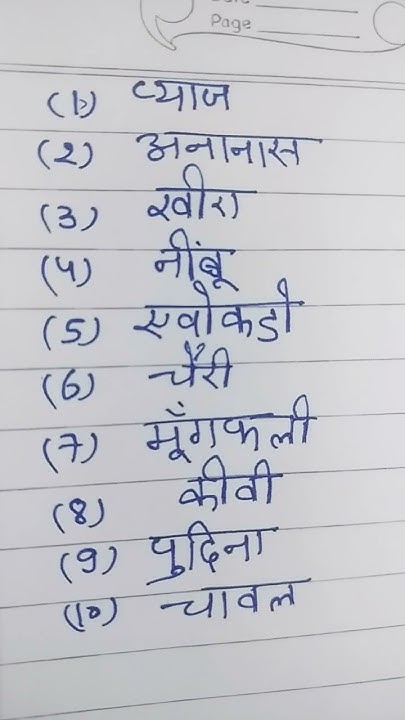 Page
(1) प्याज
(2) अनानास
(3) खीरा
(4) नींबू
(5) एवोकडो
(6) चैरी
(7) मूँगफली
(8) कीवी
(9) पुदिना
(10) चावल